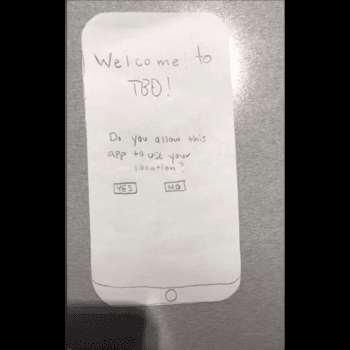 Welcome to
TBD!
Do you allow this
app to use your
location?
YES NO